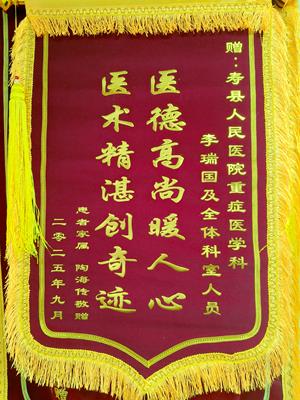 赠：寿县人民医院重症医学科
李瑞国及全体科室人员
医德高尚暖人心
医术精湛创奇迹
患者家属 陶海传敬赠
二零二五年九月